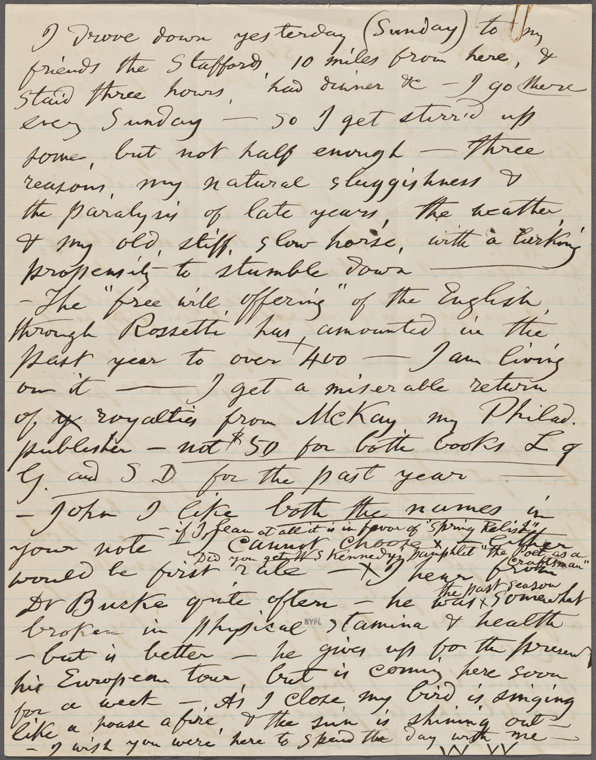 I drove down yesterday (Sunday) to my
friends the Staffords, 10 miles from here, &
staid three hours, had dinner &c – I go there
every Sunday – So I get stirr'd up
some, but not half enough – three
reasons, my natural sluggishness &
the paralysis of late years, the weather,
& my old, stiff, slow horse, with a lurking
propensity to stumble down ——
– The "free will offering" of the English,
through Rossetti, has amounted in the
past year to over $400 – I am living
on it —— I get a miserable return
of royalties from McKay, my Philad.
publisher – not $50 for both books L of
G. and S D for the past year ——
– John I like both the names in
– if I lean at all it is in favor of "Spring Relish"
your note – cannot choose – Either
Did you get W S Kennedy's pamphlet "the Poet as a
Craftsman"
would be first rate – I hear from
the past season
Dr Bucke quite often – he was somewhat
broken in physical stamina & health
NYPL
– but is better – he gives up for the present
his European tour, but is coming here soon
for a week – As I close my bird is singing
like a house afire, & the sun is shining out –
– I wish you were here to spend the day with me –
W W